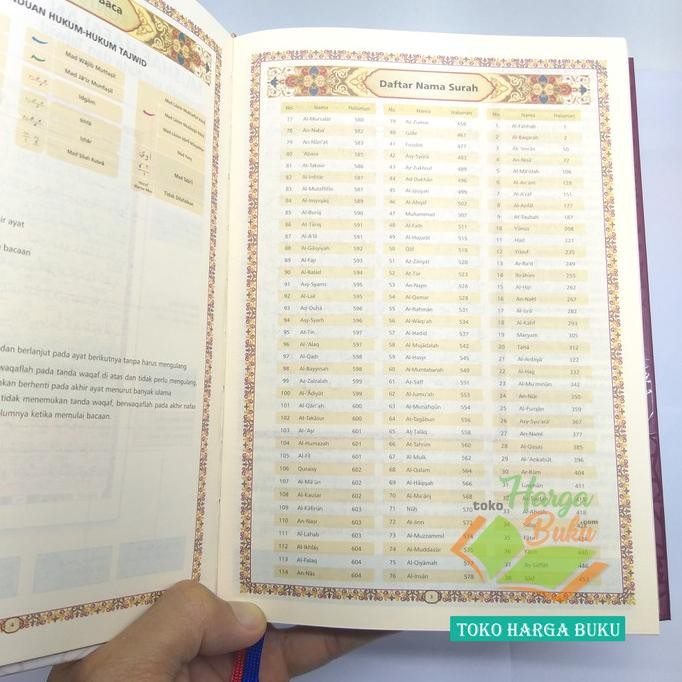 Baca
HUKUM-HUKUM TAJWID
Mad Wajib Muttaṣil
Mad Jā'iz Munfaṣil
Idgām
Iqlāb
Iẓhār
Mad Ṣilah Kubrā
Tidak Dilafalkan
ir ayat
bacaan
dan berlanjut pada ayat berikutnya tanpa harus mengulang
waqaflah pada tanda waqaf di atas dan tidak perlu mengulang,
kan berhenti pada akhir ayat menurut banyak ulama
tidak menemukan tanda waqaf, berwaqaflah pada akhir nafas
elumnya ketika memulai bacaan.
4
Daftar Nama Surah
No. Nama Halaman
77 Al-Mursalāt 580
78 An-Naba' 582
79 An-Nāzi'āt 583
80 'Abasa 585
81 At-Takwīr 586
82 Al-Infiṭār 587
83 Al-Muṭaffifīn 587
84 Al-Insyiqāq 589
85 Al-Burūj 590
86 Aṭ-Ṭāriq 591
87 Al-A'lā 591
88 Al-Gāsyiyah 592
89 Al-Fajr 593
90 Al-Balad 594
91 Asy-Syams 595
92 Al-Lail 595
93 Aḍ-Ḍuḥā 596
94 Asy-Syarḥ 596
95 At-Tīn 597
96 Al-'Alaq 597
97 Al-Qadr 598
98 Al-Bayyinah 598
99 Az-Zalzalah 599
100 Al-'Ādiyāt 599
101 Al-Qāri'ah 600
102 At-Takāṡur 600
103 Al-'Aṣr 601
104 Al-Humazah 601
105 Al-Fīl 601
106 Quraisy 602
107 Al-Mā'ūn 602
108 Al-Kauṡar 602
109 Al-Kāfirūn 603
110 An-Naṣr 603
111 Al-Lahab 603
112 Al-Ikhlāṣ 604
113 Al-Falaq 604
114 An-Nās 604
No. Nama Halaman
39 Az-Zumar 458
40 Gāfir 467
41 Fuṣṣilat 477
42 Asy-Syūrā 483
43 Az-Zukhruf 489
44 Ad-Dukhān 496
45 Al-Jāṡiyah 499
46 Al-Aḥqāf 502
47 Muḥammad 507
48 Al-Fatḥ 511
49 Al-Ḥujurāt 515
50 Qāf 518
51 Aż-Żāriyāt 520
52 Aṭ-Ṭūr 523
53 An-Najm 526
54 Al-Qamar 528
55 Ar-Raḥmān 531
56 Al-Wāqi'ah 534
57 Al-Ḥadīd 537
58 Al-Mujādalah 542
59 Al-Ḥasyr 545
60 Al-Mumtaḥanah 549
61 Aṣ-Ṣaff 551
62 Al-Jumu'ah 553
63 Al-Munāfiqūn 554
64 At-Tagābun 556
65 Aṭ-Ṭalāq 558
66 At-Taḥrīm 560
67 Al-Mulk 562
68 Al-Qalam 564
69 Al-Ḥāqqah 566
70 Al-Ma'ārij 568
71 Nūḥ 570
72 Al-Jinn 572
73 Al-Muzzammil 574
74 Al-Muddaṡṡir 575
75 Al-Qiyāmah 577
76 Al-Insān 578
No. Nama Halaman
1 Al-Fātiḥah 1
2 Al-Baqarah 2
3 Āli 'Imrān 50
4 An-Nisā' 77
5 Al-Mā'idah 106
6 Al-An'ām 128
7 Al-A'rāf 151
8 Al-Anfāl 177
9 At-Taubah 187
10 Yūnus 208
11 Hūd 221
12 Yūsuf 235
13 Ar-Ra'd 249
14 Ibrāhīm 255
15 Al-Ḥijr 262
16 An-Naḥl 267
17 Al-Isrā' 282
18 Al-Kahf 293
19 Maryam 305
20 Ṭāhā 312
21 Al-Anbiyā' 322
22 Al-Ḥajj 332
23 Al-Mu'minūn 342
24 An-Nūr 350
25 Al-Furqān 359
26 Asy-Syu'arā' 367
27 An-Naml 377
28 Al-Qaṣaṣ 385
29 Al-'Ankabūt 396
30 Ar-Rūm 404
31 Luqmān 411
33 Al-Aḥzāb 418
35 Fāṭir
36 Yāsīn 440
37 Aṣ-Ṣāffāt 446
38 Ṣād 453
3
toko Harga Buku .com
TOKO HARGA BUKU